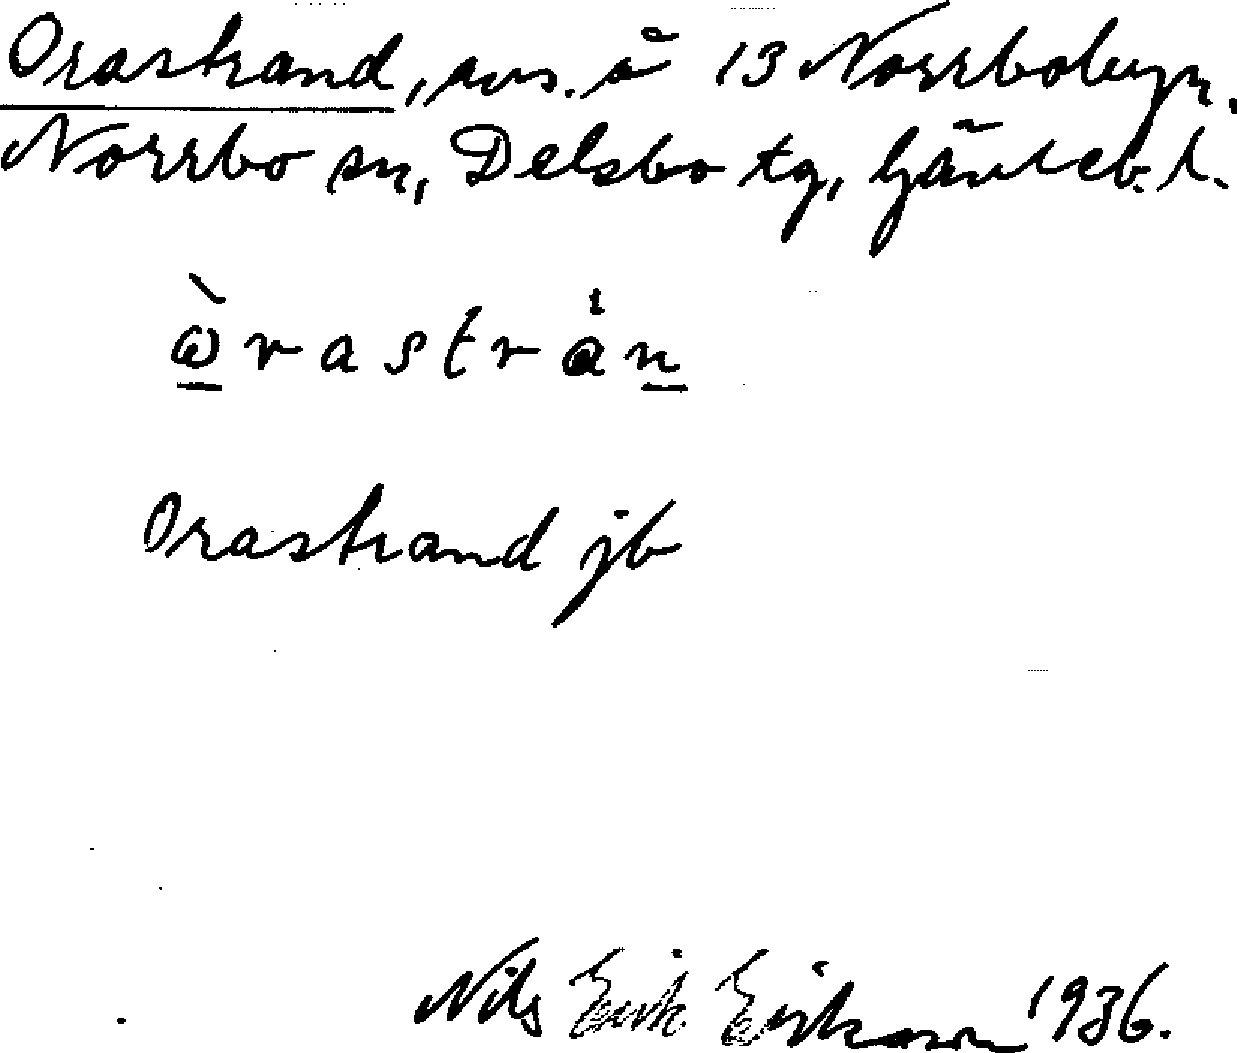 Orastrand, avs. å 13 Norrbobyn.
Norrbo sn, Delsbo tg, Gävleb. l.
Orastrand jb
Nils Erik Erikson 1936.